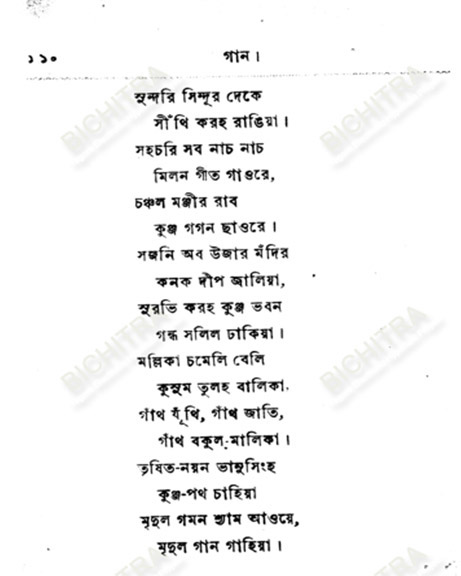 ১১০ গান ।
সুন্দরি সিন্দূর দেকে
সীঁথি করহ রাঙিয়া ।
সহচরি সব নাচ নাচ
মিলন গীত গাওরে,
চঞ্চল মঞ্জীর রাব
কুঞ্জ গগন ছাওরে ।
সজনি অব উজার মঁদির
কনক দীপ জালিয়া,
সুরভি করহ কুঞ্জ ভবন
গন্ধ সলিল ঢাকিয়া ।
মল্লিকা চমেলি বেলি
কুসুম তুলহ বালিকা.
গাঁথ যূঁথি, গাঁথ জাতি,
গাঁথ বকুল-মালিকা ।
তৃষিত-নয়ন ভানুসিংহ
কুঞ্জ-পথ চাহিয়া
মৃদুল গমন শ্যাম আওয়ে,
মৃদুল গান গাহিয়া ।
BICHITRA
BICHITRA
BICHITRA
BICHITRA
BICHITRA
BICHITRA